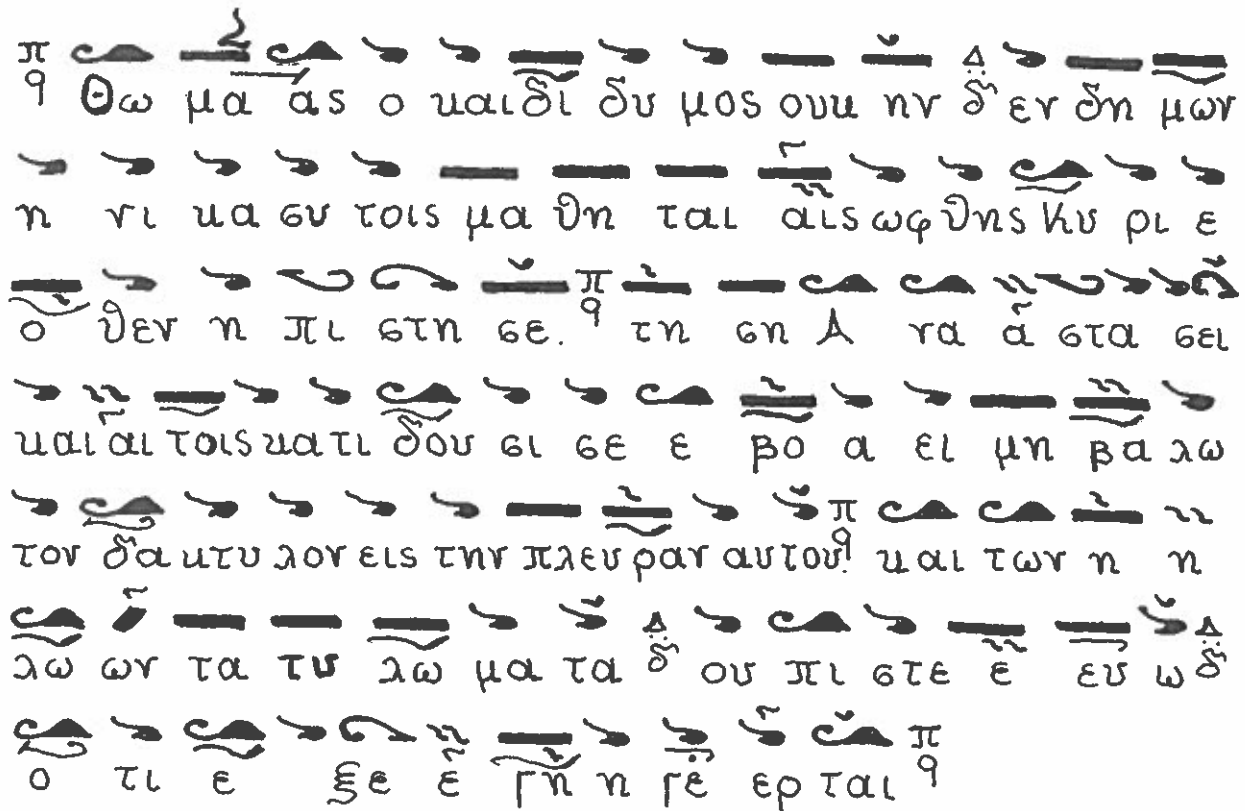 π q Θω μα ας ο και δι δυ μος ουκ ην Δ δ εν δη μων
η νι κα συ τοις μα θη ται αις ωφ θης Κυ ρι ε
ο θεν η πι στη σε. π q τη ση Α να α στα σει
και αι τοις κα τι δου σι σε ε βο α ει μη βα λω
τον δα κτυ λον εις την πλευ ραν αυ του. π q και των η η
λω ων τα τυ λω μα τα Δ δ ου πι στε ε ευ ω Δ δ
ο τι ε ξε ε γη η γε ερ ται π q